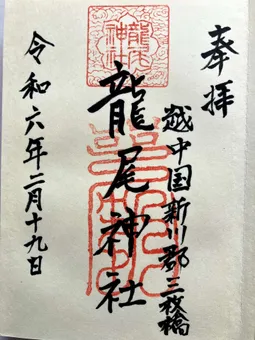 奉拝
越中国新川郡三枚橋
龍尾神社
令和六年二月十九日